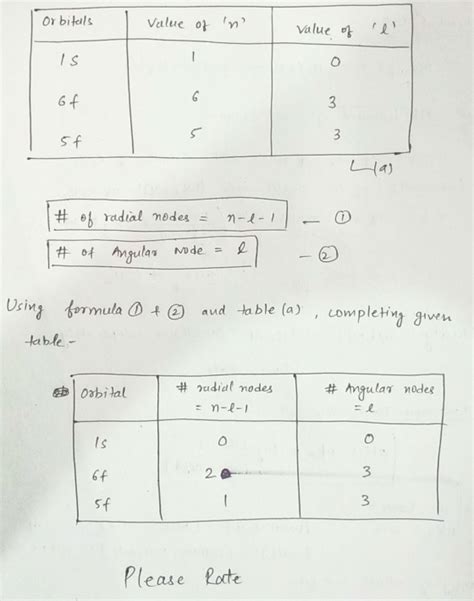 Orbitals Value of 'n' Value of 'l'
1s 1 0
6f 6 3
5f 5 3
(a)
# of radial nodes = n-l-1 — ①
# of Angular Node = l — ②
Using formula ① + ② and table (a), completing given
table -
Orbital # radial nodes # Angular nodes
= n-l-1 = l
1s 0 0
6f 2 3
5f 1 3
Please Rate